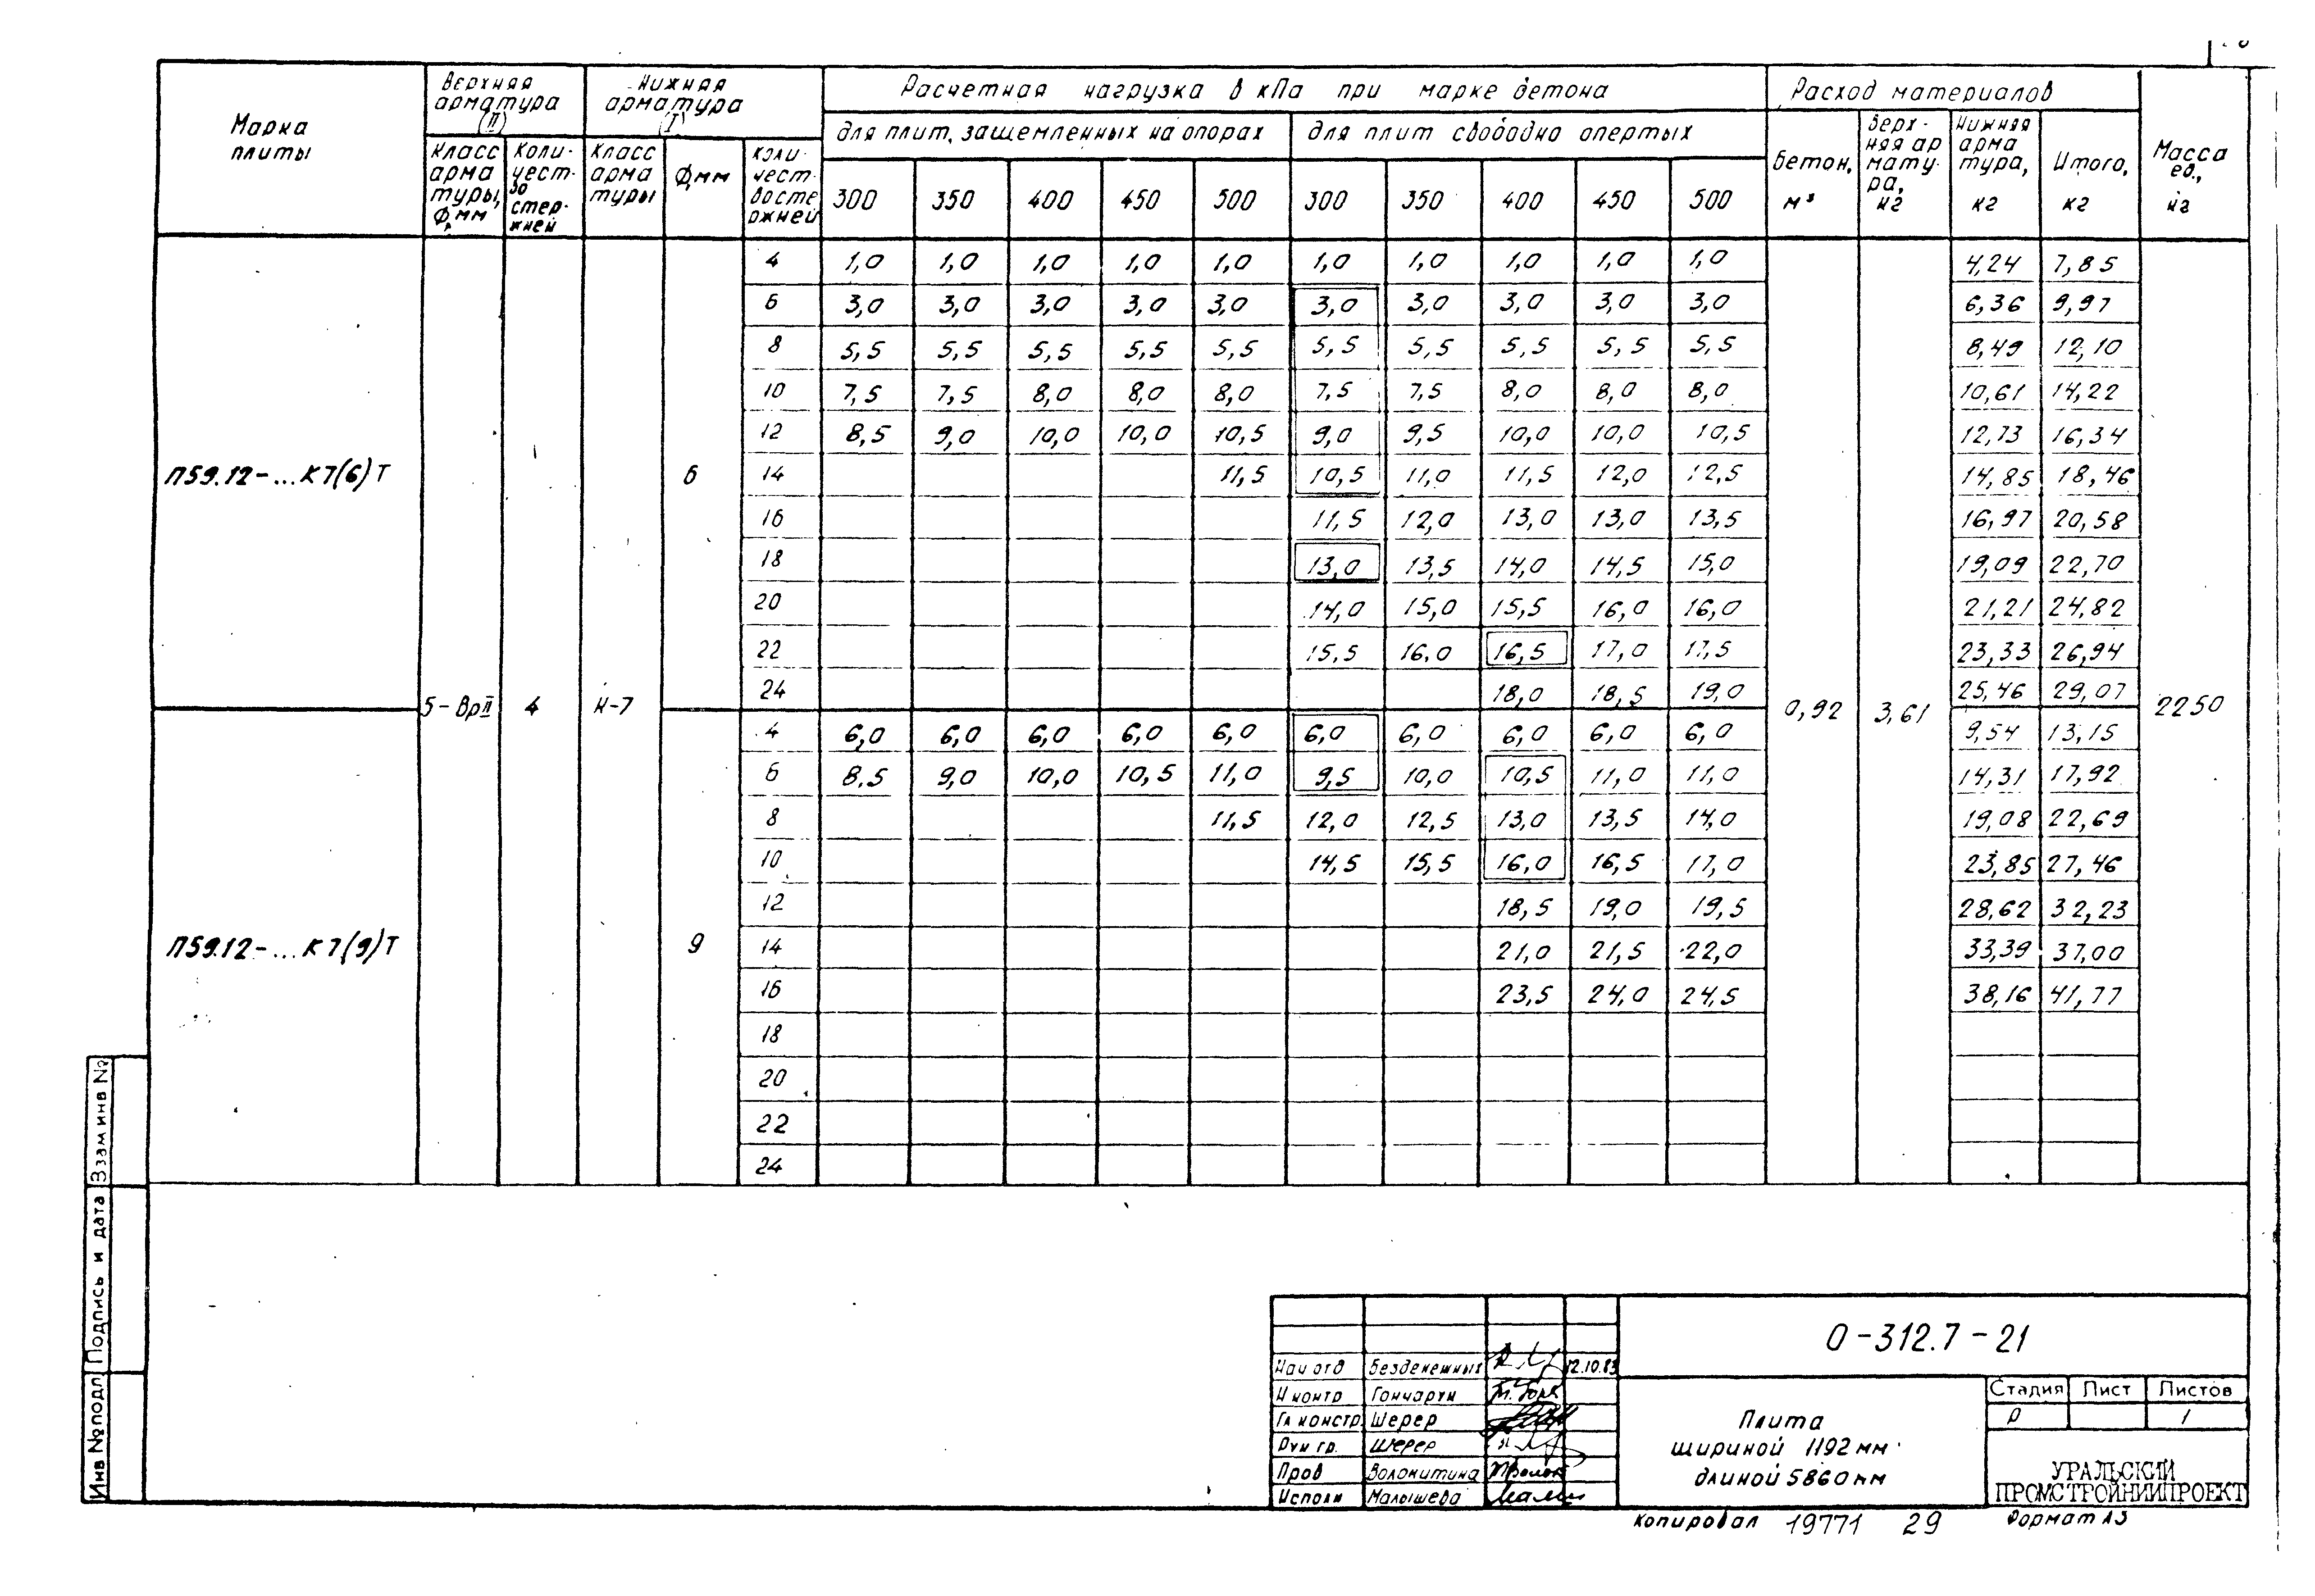 Марка плиты
Верхняя арматура (II)
Нижняя арматура (I)
Расчетная нагрузка в кПа при марке бетона
Расход материалов
Масса ед., кг
для плит, защемленных на опорах
для плит свободно опертых
Класс арматуры, Ф, мм
Количество стержней
Класс арматуры
Ф, мм
Количество стержней
300 350 400 450 500 300 350 400 450 500
Бетон, м³
Верхняя арматура, кг
Нижняя арматура, кг
Итого, кг
4 1,0 1,0 1,0 1,0 1,0 1,0 1,0 1,0 1,0 1,0 4,24 7,85
6 3,0 3,0 3,0 3,0 3,0 3,0 3,0 3,0 3,0 3,0 6,36 9,97
8 5,5 5,5 5,5 5,5 5,5 5,5 5,5 5,5 5,5 5,5 8,49 12,10
10 7,5 7,5 8,0 8,0 8,0 7,5 7,5 8,0 8,0 8,0 10,61 14,22
12 8,5 9,0 10,0 10,0 10,5 9,0 9,5 10,0 10,0 10,5 12,73 16,34
П59.12-...К7(6)Т 6 14 11,5 10,5 11,0 11,5 12,0 12,5 14,85 18,46
16 11,5 12,0 13,0 13,0 13,5 16,97 20,58
18 13,0 13,5 14,0 14,5 15,0 19,09 22,70
20 14,0 15,0 15,5 16,0 16,0 21,21 24,82
22 15,5 16,0 16,5 17,0 17,5 23,33 26,94
24 18,0 18,5 19,0 25,46 29,07
5-ВрII 4 К-7 0,92 3,61 2250
4 6,0 6,0 6,0 6,0 6,0 6,0 6,0 6,0 6,0 6,0 9,54 13,15
6 8,5 9,0 10,0 10,5 11,0 9,5 10,0 10,5 11,0 11,0 14,31 17,92
8 11,5 12,0 12,5 13,0 13,5 14,0 19,08 22,69
10 14,5 15,5 16,0 16,5 17,0 23,85 27,46
12 18,5 19,0 19,5 28,62 32,23
П59.12-...К7(9)Т 9 14 21,0 21,5 22,0 33,39 37,00
16 23,5 24,0 24,5 38,16 41,77
18
20
22
24
Взам инв №
Подпись и дата
Инв № подл
О-312.7-21
Нач отд Безденежных 12.10.83
Н контр Гончарун
Гл констр. Шерер
Рук гр. Шерер
Пров Волокитина
Исполн Малышева
Плита
шириной 1192 мм
длиной 5860 мм
Стадия Лист Листов
Р 1
УРАЛЬСКИЙ
ПРОМСТРОЙНИИПРОЕКТ
Копировал 19771 29 Формат А3